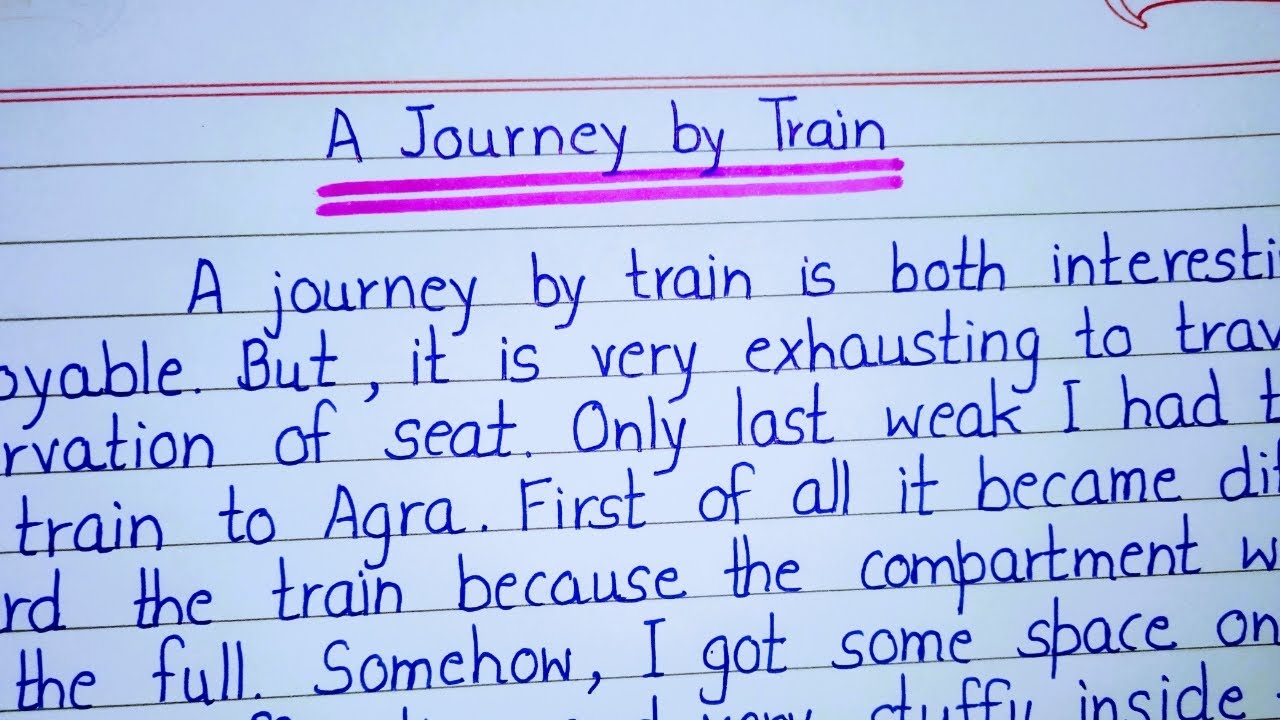 A Journey by Train
A journey by train is both interesti
oyable. But, it is very exhausting to trav
rvation of seat. Only last weak I had t
train to Agra. First of all it became dif
rd the train because the compartment w
the full. Somehow, I got some space on
very stuffy inside